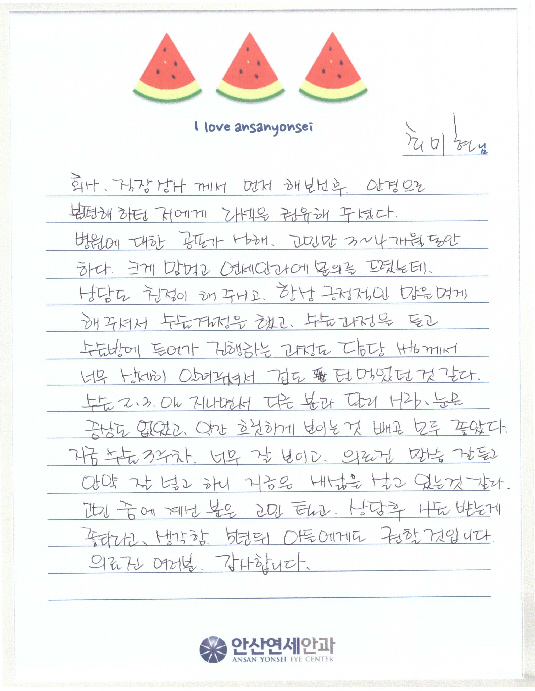 I love ansanyonsei
최미현님
회사. 직장상사 께서 먼저 해보신후. 안경으로
불편해 하던 저에게 라섹을 권유해 주셨다.
병원에 대한 공포가 심해. 고민만 3~4개월 동안
하다. 크게 맘먹고 연세안과에 문의를 드렸는데.
상담도 친절이 해 주시고. 항상 긍정적인 말을 먼저
해 주셔서 수술결정을 했고. 수술과정을 듣고
수술방에 들어가 진행하는 과정도 담당 께서
너무 상세히 알려주셔서 겁도 덜 먹었던 것 같다.
수술 2.3.일 지나면서 다른 분과 달리 시림, 눈물
증상도 없었고, 약간 흐릿하게 보이는것 빼곤 모두 좋았다.
지금 수술 3주차. 너무 잘 보이고. 의료진 말씀 잘듣고
안약 잘 넣고 하니 지금은 새삶을 살고 있는것 같다.
고민 중에 계신 분은 고민 하고. 상담후 시술 받는게
좋다라고, 생각함 몇년뒤 아들에게도 권할것입니다
의료진 여러분. 감사합니다.
안산연세안과
ANSAN YONSEI EYE CENTER